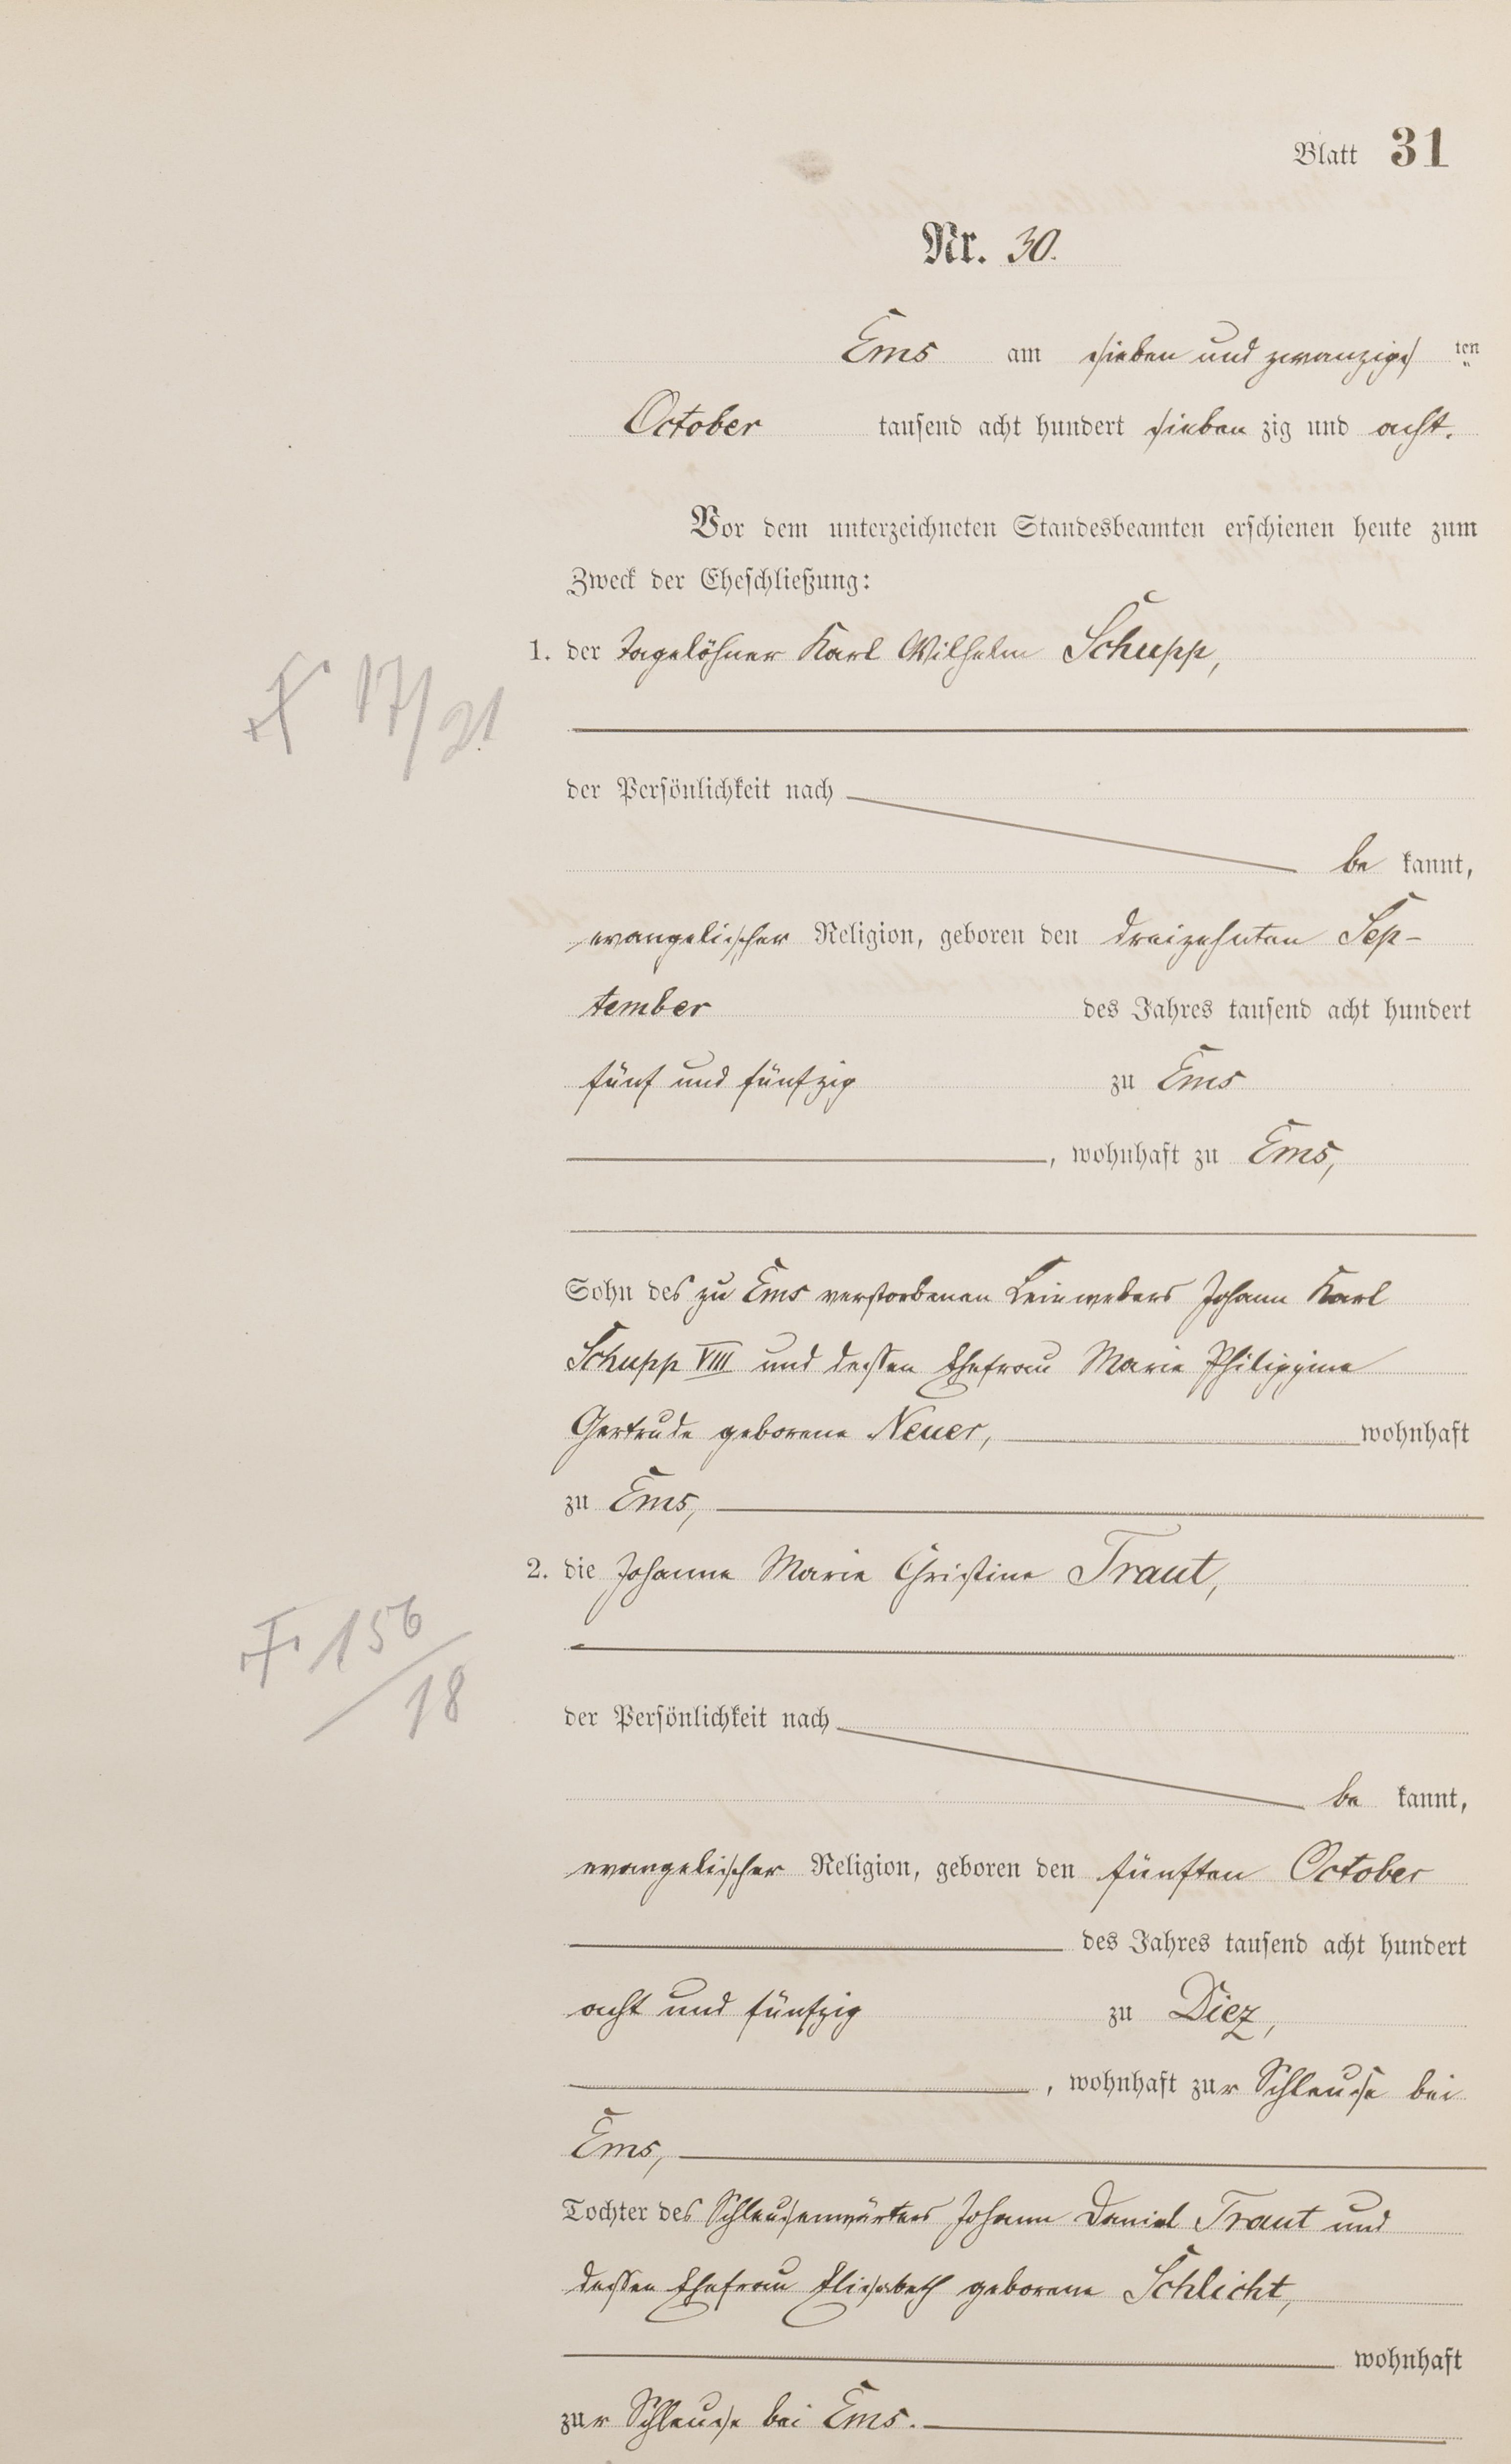 Blatt 31
Nr. 30.
Ems am sieben und zwanzigsten
October tausend acht hundert sieben zig und acht.
Vor dem unterzeichneten Standesbeamten erschienen heute zum
Zweck der Eheschließung:
1. der Tagelöhner Karl Wilhelm Schupp,
der Persönlichkeit nach
be kannt,
evangelischer Religion, geboren den dreizehnten Sep-
tember des Jahres tausend acht hundert
fünf und fünfzig zu Ems
, wohnhaft zu Ems,
Sohn des zu Ems verstorbenen Leinwebers Johann Karl
Schupp VIII und dessen Ehefrau Marie Philippine
Gertrude geborene Neuer, wohnhaft
zu Ems,
2. die Johanne Marie Christine Traut,
der Persönlichkeit nach
be kannt,
evangelischer Religion, geboren den fünften October
des Jahres tausend acht hundert
acht und fünfzig zu Diez,
, wohnhaft zur Schleuse bei
Ems,
Tochter des Schleusenwärters Johann Daniel Traut und
dessen Ehefrau Elisabeth geborene Schlicht,
wohnhaft
zur Schleuse bei Ems.
17/21
F. 156/18